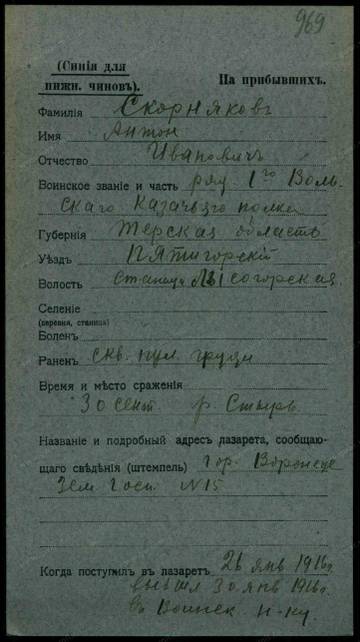 969
(Синія для
нижн. чиновъ).
На прибывшихъ.
Фамилія Скорняковъ
Имя Антон
Отчество Ивановичъ
Воинское званіе и часть ряд. 1го Воль-
скаго Казачьяго полка
Губернія Терская область
Уѣздъ Пятигорскій
Волость станица Лысогорская
Селеніе
(деревня, станица)
Боленъ
Раненъ скв. пул. груди
Время и мѣсто сраженія
30 сент. р. Стырь
Названіе и подробный адресъ лазарета, сообщаю-
щаго свѣдѣнія (штемпель) гор. Воронеж
Зем Госп. N15
Когда поступилъ въ лазаретъ 26 янв 1916г.
30 янв 1916г.
Воинск. н-ку.